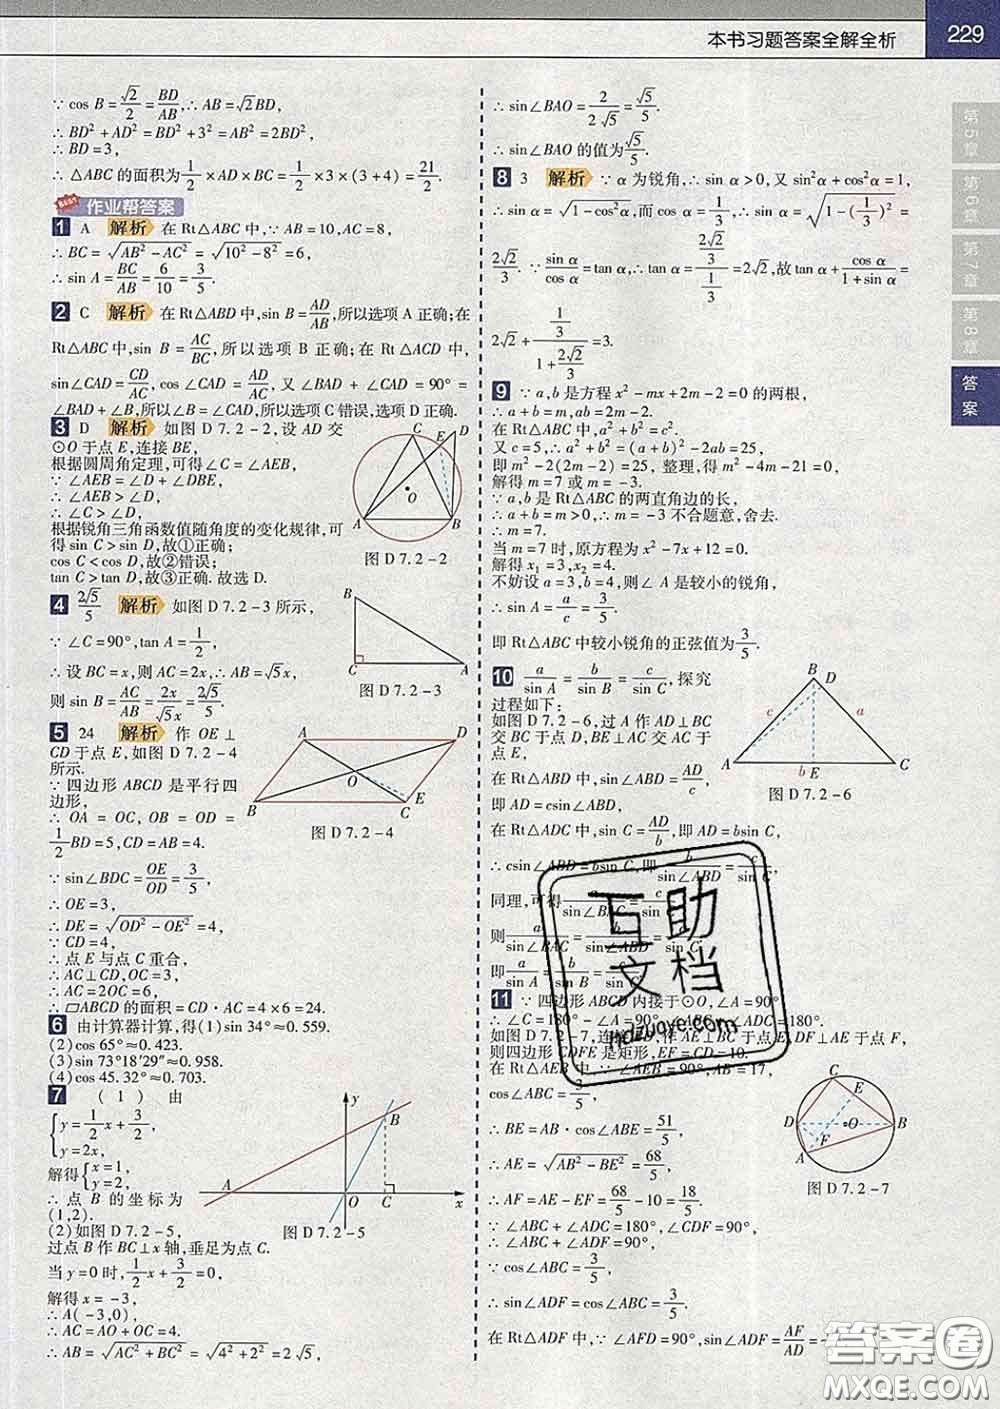 本书习题答案全解全析
229
∵ cos B = √2/2 = BD/AB, ∴ AB = √2BD,
∴ BD² + AD² = BD² + 3² = AB² = 2BD²,
∴ BD = 3,
∴ △ABC 的面积为 1/2 × AD × BC = 1/2 × 3 × (3 + 4) = 21/2.
作业帮答案
1 A 解析 在 Rt△ABC 中, ∵ AB = 10, AC = 8,
∴ BC = √(AB² − AC²) = √(10² − 8²) = 6,
∴ sin A = BC/AB = 6/10 = 3/5.
2 C 解析 在 Rt△ABD 中, sin B = AD/AB, 所以选项 A 正确; 在
Rt△ABC 中, sin B = AC/BC, 所以选项 B 正确; 在 Rt△ACD 中,
sin∠CAD = CD/AC, cos∠CAD = AD/AC, 又 ∠BAD + ∠CAD = 90° =
∠BAD + ∠B, 所以∠B = ∠CAD, 所以选项 C 错误, 选项 D 正确.
3 D 解析 如图 D 7.2-2, 设 AD 交
⊙O 于点 E, 连接 BE,
根据圆周角定理, 可得∠C = ∠AEB,
∵ ∠AEB = ∠D + ∠DBE,
∴ ∠AEB > ∠D,
∴ ∠C > ∠D,
根据锐角三角函数值随角度的变化规律, 可
得 sin C > sin D, 故①正确;
cos C < cos D, 故②错误;
tan C > tan D, 故③正确. 故选 D.
C E D
O
A B
图 D 7.2-2
4 2√5/5 解析 如图 D 7.2-3 所示,
∵ ∠C = 90°, tan A = 1/2,
∴ 设 BC = x, 则 AC = 2x, ∴ AB = √5x,
则 sin B = AC/AB = 2x/√5x = 2√5/5.
B
C A
图 D 7.2-3
5 24 解析 作 OE ⊥
CD 于点 E, 如图 D 7.2-4
所示.
∵ 四边形 ABCD 是平行四
边形,
∴ OA = OC, OB = OD =
1/2 BD = 5, CD = AB = 4.
∵ sin∠BDC = OE/OD = 3/5,
∴ OE = 3,
∴ DE = √(OD² − OE²) = 4,
∵ CD = 4,
∴ 点 E 与点 C 重合,
∴ AC ⊥ CD, OC = 3,
∴ AC = 2OC = 6,
∴ ▱ABCD 的面积 = CD · AC = 4 × 6 = 24.
A D
O
E
B C
图 D 7.2-4
6 由计算器计算, 得(1) sin 34° ≈ 0.559.
(2) cos 65° ≈ 0.423.
(3) sin 73°18′29″ ≈ 0.958.
(4) cos 45.32° ≈ 0.703.
7 (1) 由
{ y = 1/2 x + 3/2,
y = 2x,
解得 { x = 1,
y = 2,
∴ 点 B 的坐标为
(1,2).
(2) 如图 D 7.2-5,
过点 B 作 BC ⊥ x 轴, 垂足为点 C.
当 y = 0 时, 1/2 x + 3/2 = 0,
解得 x = −3,
∴ A(−3,0),
∴ AC = AO + OC = 4,
∴ AB = √(AC² + BC²) = √(4² + 2²) = 2√5,
y
B
A O C x
图 D 7.2-5
∴ sin∠BAO = 2/2√5 = √5/5.
∴ sin∠BAO 的值为 √5/5.
8 3 解析 ∵ α 为锐角, ∴ sin α > 0, 又 sin²α + cos²α = 1,
∴ sin α = √(1 − cos²α), 而 cos α = 1/3, ∴ sin α = √(1 − (1/3)²) =
2√2/3. ∵ sin α/cos α = tan α, ∴ tan α = (2√2/3)/(1/3) = 2√2, 故 tan α + cos α/(1 + sin α) =
2√2 + (1/3)/(1 + 2√2/3) = 3.
9 ∵ a, b 是方程 x² − mx + 2m − 2 = 0 的两根,
∴ a + b = m, ab = 2m − 2.
在 Rt△ABC 中, a² + b² = c².
又 c = 5, ∴ a² + b² = (a + b)² − 2ab = 25,
即 m² − 2(2m − 2) = 25, 整理, 得 m² − 4m − 21 = 0,
解得 m = 7 或 m = −3.
∵ a, b 是 Rt△ABC 的两直角边的长,
∴ a + b = m > 0, ∴ m = −3 不合题意, 舍去.
∴ m = 7.
当 m = 7 时, 原方程为 x² − 7x + 12 = 0.
解得 x₁ = 3, x₂ = 4.
不妨设 a = 3, b = 4, 则 ∠A 是较小的锐角,
∴ sin A = a/c = 3/5.
即 Rt△ABC 中较小锐角的正弦值为 3/5.
10 a/sin A = b/sin B = c/sin C, 探究
过程如下:
如图 D 7.2-6, 过 A 作 AD ⊥ BC
交 BC 于点 D, BE ⊥ AC 交 AC 于
点 E,
在 Rt△ABD 中, sin∠ABD = AD/c,
即 AD = csin∠ABD,
在 Rt△ADC 中, sin C = AD/b, 即 AD = bsin C,
∴ csin∠ABD = bsin C, 即 b/sin∠ABD = c/sin C,
同理, 可得 a/sin∠BAC = c/sin C,
则 a/sin∠BAC = b/sin∠ABD = c/sin C,
即 a/sin A = b/sin B = c/sin C.
B D
c a
A b E C
图 D 7.2-6
11 ∵ 四边形 ABCD 内接于⊙O, ∠A = 90°,
∴ ∠C = 180° − ∠A = 90°, ∠ABC + ∠ADC = 180°.
如图 D 7.2-7, 连接 BD, 作 AE ⊥ BC 于点 E, DF ⊥ AE 于点 F,
则四边形 CDFE 是矩形, EF = CD = 10.
在 Rt△AEB 中, ∵ ∠AEB = 90°, AB = 17,
cos∠ABC = 3/5,
∴ BE = AB · cos∠ABE = 51/5,
∴ AE = √(AB² − BE²) = 68/5,
∴ AF = AE − EF = 68/5 − 10 = 18/5.
∵ ∠ABC + ∠ADC = 180°, ∠CDF = 90°,
∴ ∠ABC + ∠ADF = 90°,
∵ cos∠ABC = 3/5,
∴ sin∠ADF = cos∠ABC = 3/5.
在 Rt△ADF 中, ∵ ∠AFD = 90°, sin∠ADF = AF/AD =
C E
D O B
F
A
图 D 7.2-7
第5章
第6章
第7章
第8章
答案
互助
文档
hdzuoye.com
答案圈
MXQE.COM